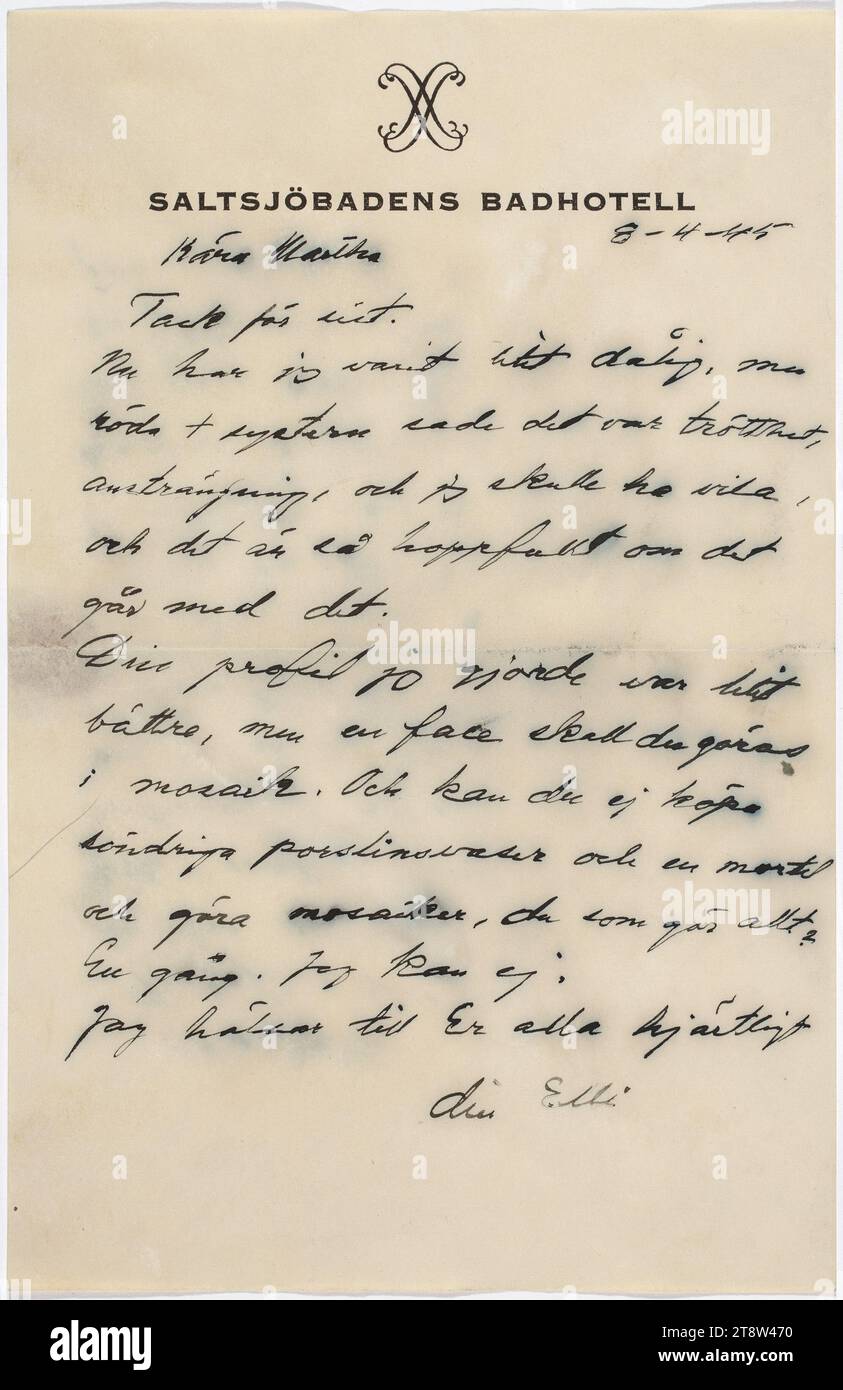 SALTSJÖBADENS BADHOTELL
8-4-45
Kära Martha
Tack för sist.
Nu har jag varit litet dålig, men
röda + systern sade det var trötthet,
ansträngning, och jag skulle ha vila,
och det är så hoppfullt om det
går med det.
Din profil jag gjorde var litet
bättre, men en face skall du göras
i mosaik. Och kan du ej köpa
söndriga porslinsvaser och en mortel
och göra mosaiker, du som gör allt?
En gång. Jag kan ej.
Jag hälsar till Er alla hjärtligt
din Elli
alamy
Image ID: 2T8W470
www.alamy.com